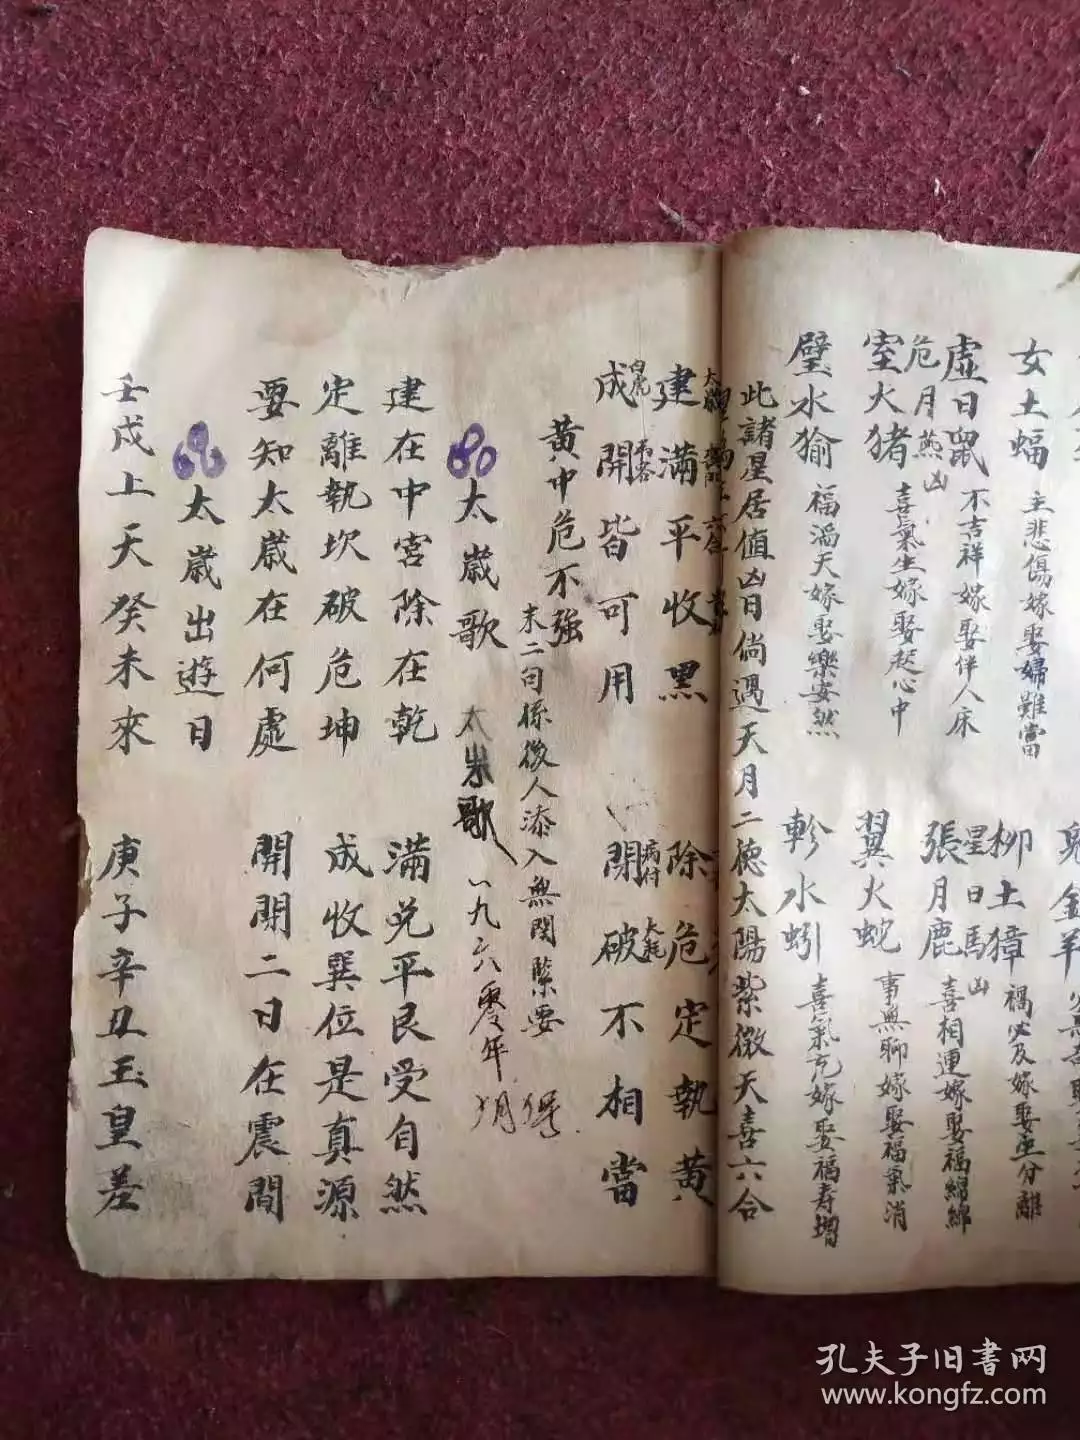 女土蝠 主悲傷嫁娶婦難當
柳土獐 禍必及嫁娶垂分離
虛日鼠 不吉祥嫁娶伴人床
星日馬凶
危月燕凶
張月鹿 喜相連嫁娶福綿綿
室火猪 喜氣生嫁娶起心中
翼火蛇 事無聊嫁娶福氣消
璧水㺄 福滔天嫁娶樂安然
軫水蚓 喜氣冗嫁娶福寿增
此諸星居值凶日倘遇天月二德太陽紫微天喜六合
建滿平收黑 除危定執黃
成開皆可用 閉破不相當
白虎
病付
大耗
黃中危不强
末二句係後人添入無関緊要
60 太歲歌
太歲歌 一九六零年 月
建在中宮除在乾 滿兌平艮受自然
定離執坎破危坤 成收巽位是真源
要知太歲在何處 開開二日在震間
太歲出遊日
壬戌上天癸未來 庚子辛丑玉皇差
孔夫子旧書网
www.kongfz.com